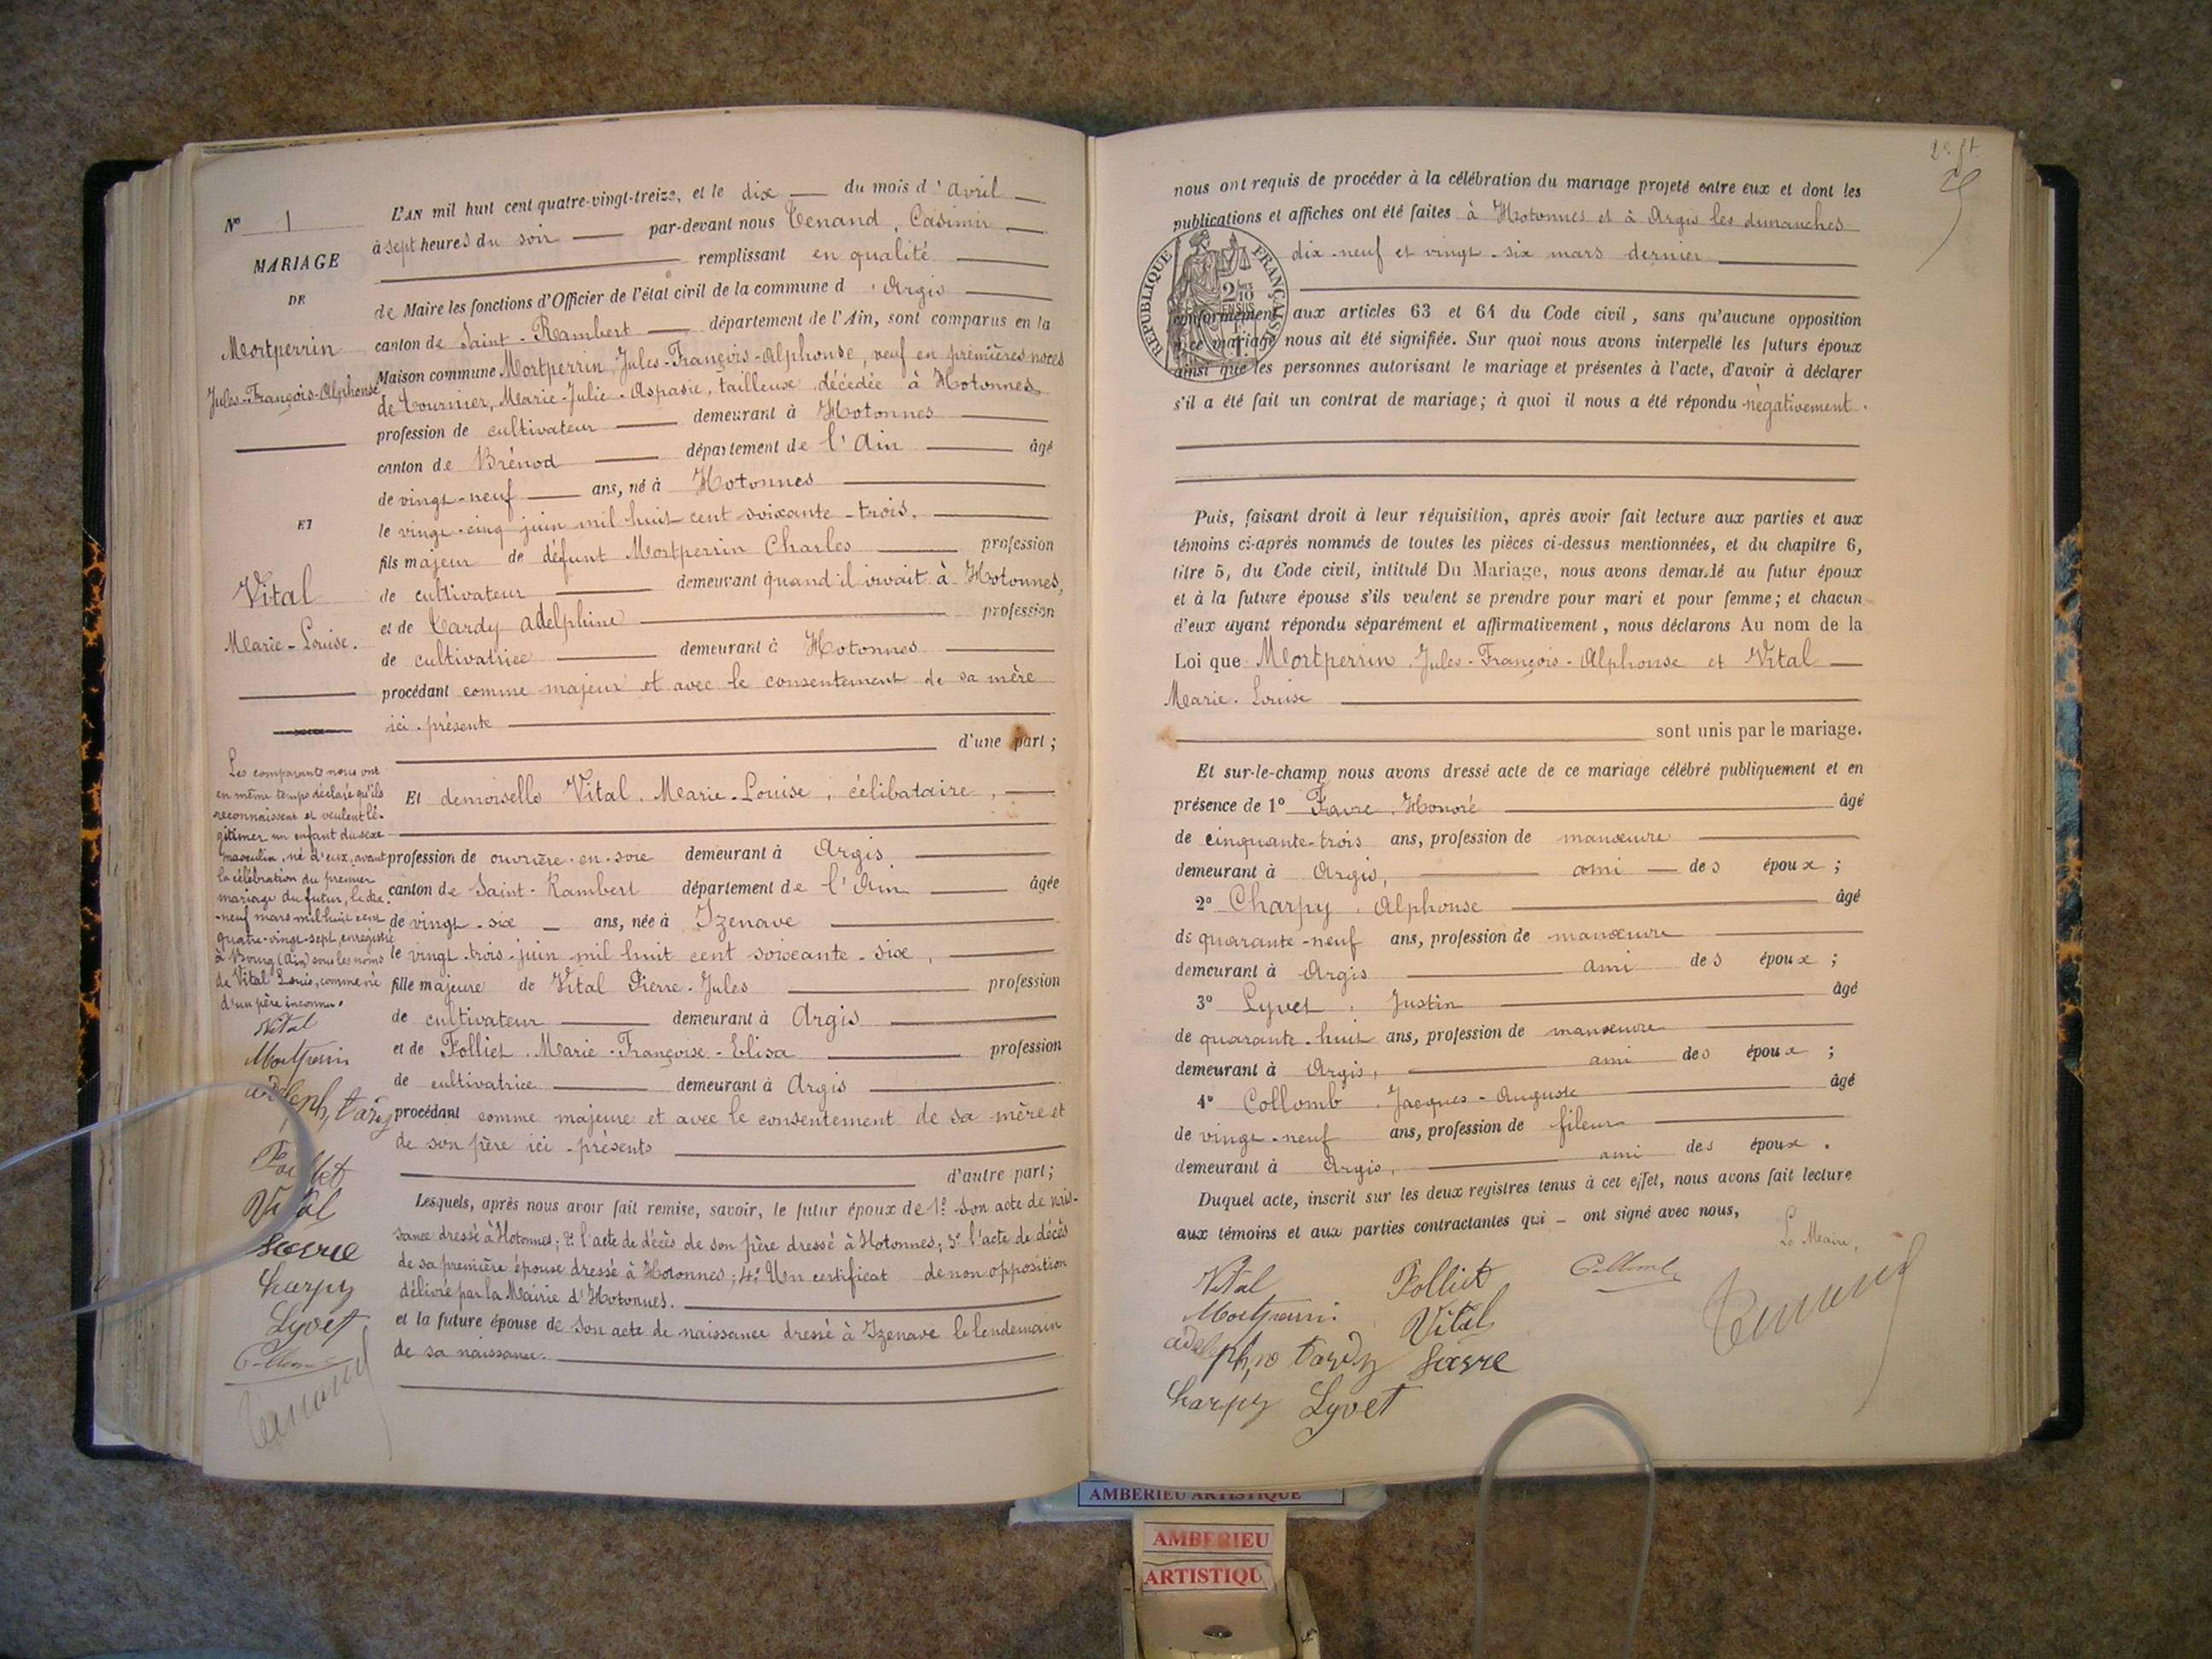 N° 1
MARIAGE
DE
Mortperrin
Jules-François-Alphonse
ET
Vital
Marie-Louise.
Les comparants nous ont
en même temps déclaré qu'ils
reconnaissent et veulent lé-
gitimer un enfant du sexe
masculin, né d'eux, avant
la célébration du premier
mariage du futur, le dix-
-neuf mars mil huit cent
quatre-vingt-sept, enregistré
à Bourg (Ain) sous les noms
de Vital Louis, comme né
d'un père inconnu.
Vital
Mortperrin
Tardy
Folliet
Vital
Favre
Charpy
Lyvet
Collomb
Tenand
L'AN mil huit cent quatre-vingt-treize, et le dix du mois d'avril
à sept heures du soir par-devant nous Tenand, Casimir
remplissant en qualité
de Maire les fonctions d'Officier de l'état civil de la commune d'Argis
canton de Saint-Rambert département de l'Ain, sont comparus en la
Maison commune Mortperrin, Jules-François-Alphonse, veuf en premières noces
de Tournier, Marie-Julie-Aspasie, tailleuse, décédée à Hotonnes
profession de cultivateur demeurant à Hotonnes
canton de Brénod département de l'Ain âgé
de vingt-neuf ans, né à Hotonnes
le vingt-cinq juin mil huit cent soixante-trois,
fils majeur de défunt Mortperrin Charles profession
de cultivateur demeurant quand il vivait à Hotonnes,
et de Tardy Adelphine profession
de cultivatrice demeurant à Hotonnes
procédant comme majeur et avec le consentement de sa mère
ici-présente
d'une part;
Et demoiselle Vital, Marie-Louise, célibataire,
profession de ouvrière-en-soie demeurant à Argis,
canton de Saint-Rambert département de l'Ain âgée
de vingt-six ans, née à Izenave
le vingt-trois-juin mil huit cent soixante-six,
fille majeure de Vital Pierre-Jules profession
de cultivateur demeurant à Argis
et de Folliet, Marie-Françoise-Elisa profession
de cultivatrice demeurant à Argis
procédant comme majeure et avec le consentement de sa mère et
de son père ici-présents
d'autre part;
Lesquels, après nous avoir fait remise, savoir, le futur époux de 1° son acte de nais-
sance dressé à Hotonnes; 2° l'acte de décès de son père dressé à Hotonnes; 3° l'acte de décès
de sa première épouse dressé à Hotonnes; 4° Un certificat de non opposition
délivré par la Mairie d'Hotonnes.
et la future épouse de son acte de naissance dressé à Izenave le lendemain
de sa naissance.
nous ont requis de procéder à la célébration du mariage projeté entre eux et dont les
publications et affiches ont été faites à Hotonnes et à Argis les dimanches
dix-neuf et vingt-six mars dernier
RÉPUBLIQUE FRANÇAISE
conformément aux articles 63 et 64 du Code civil, sans qu'aucune opposition
à ce mariage nous ait été signifiée. Sur quoi nous avons interpellé les futurs époux
ainsi que les personnes autorisant le mariage et présentes à l'acte, d'avoir à déclarer
s'il a été fait un contrat de mariage; à quoi il nous a été répondu négativement.
Puis, faisant droit à leur réquisition, après avoir fait lecture aux parties et aux
témoins ci-après nommés de toutes les pièces ci-dessus mentionnées, et du chapitre 6,
titre 5, du Code civil, intitulé Du Mariage, nous avons demandé au futur époux
et à la future épouse s'ils veulent se prendre pour mari et pour femme; et chacun
d'eux ayant répondu séparément et affirmativement, nous déclarons Au nom de la
Loi que Mortperrin, Jules-François-Alphonse et Vital
Marie-Louise
sont unis par le mariage.
Et sur-le-champ nous avons dressé acte de ce mariage célébré publiquement et en
présence de 1° Favre, Honoré âgé
de cinquante-trois ans, profession de manœuvre
demeurant à Argis, ami des époux;
2° Charpy, Alphonse âgé
de quarante-neuf ans, profession de manœuvre
demeurant à Argis ami des époux;
3° Lyvet, Justin âgé
de quarante-huit ans, profession de manœuvre
demeurant à Argis, ami des époux;
4° Collomb, Jacques-Auguste âgé
de vingt-neuf ans, profession de fileur
demeurant à Argis, ami des époux.
Duquel acte, inscrit sur les deux registres tenus à cet effet, nous avons fait lecture
aux témoins et aux parties contractantes qui ont signé avec nous,
Le Maire,
Vital Folliet Collomb
Mortperrin Vital Tenand
Tardy Favre
Charpy Lyvet
AMBERIEU ARTISTIQUE
AMBERIEU
ARTISTIQU